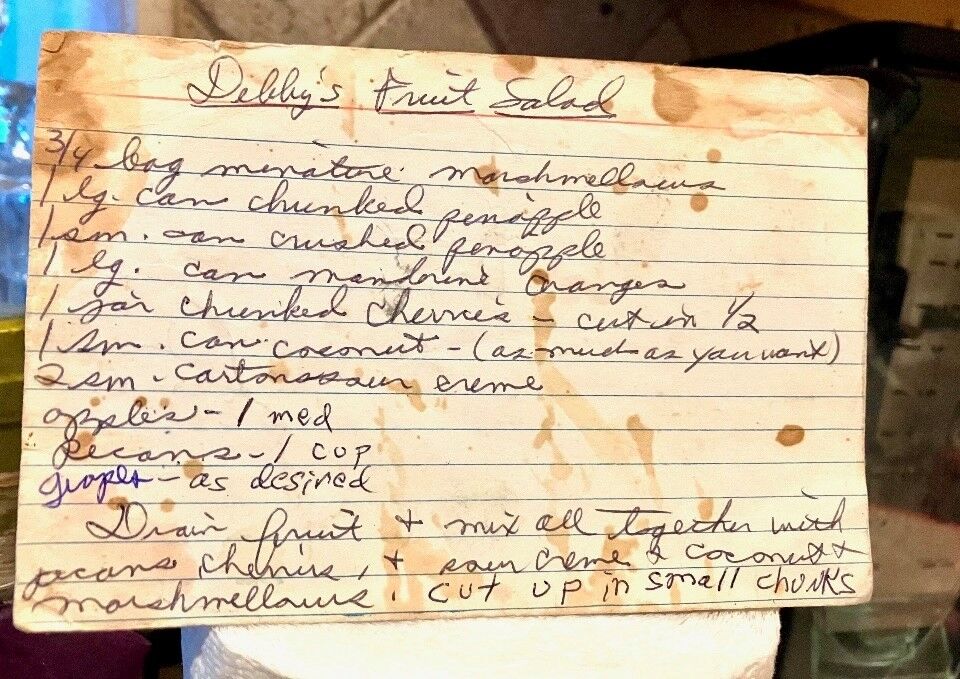 Debby's Fruit Salad
3/4 bag minature marshmellows
1 lg. can chunked penapple
1 sm. can crushed penapple
1 lg. can mandrine oranges
1 jar chunked cherries - cut in 1/2
1 sm. can coconut - (as much as you want)
2 sm. cartons sour creme
apples - 1 med
Pecans - 1 cup
grapes - as desired
Drain fruit + mix all together with
pecans, cherries, + sour creme & coconut +
marshmellows. cut up in small chunks